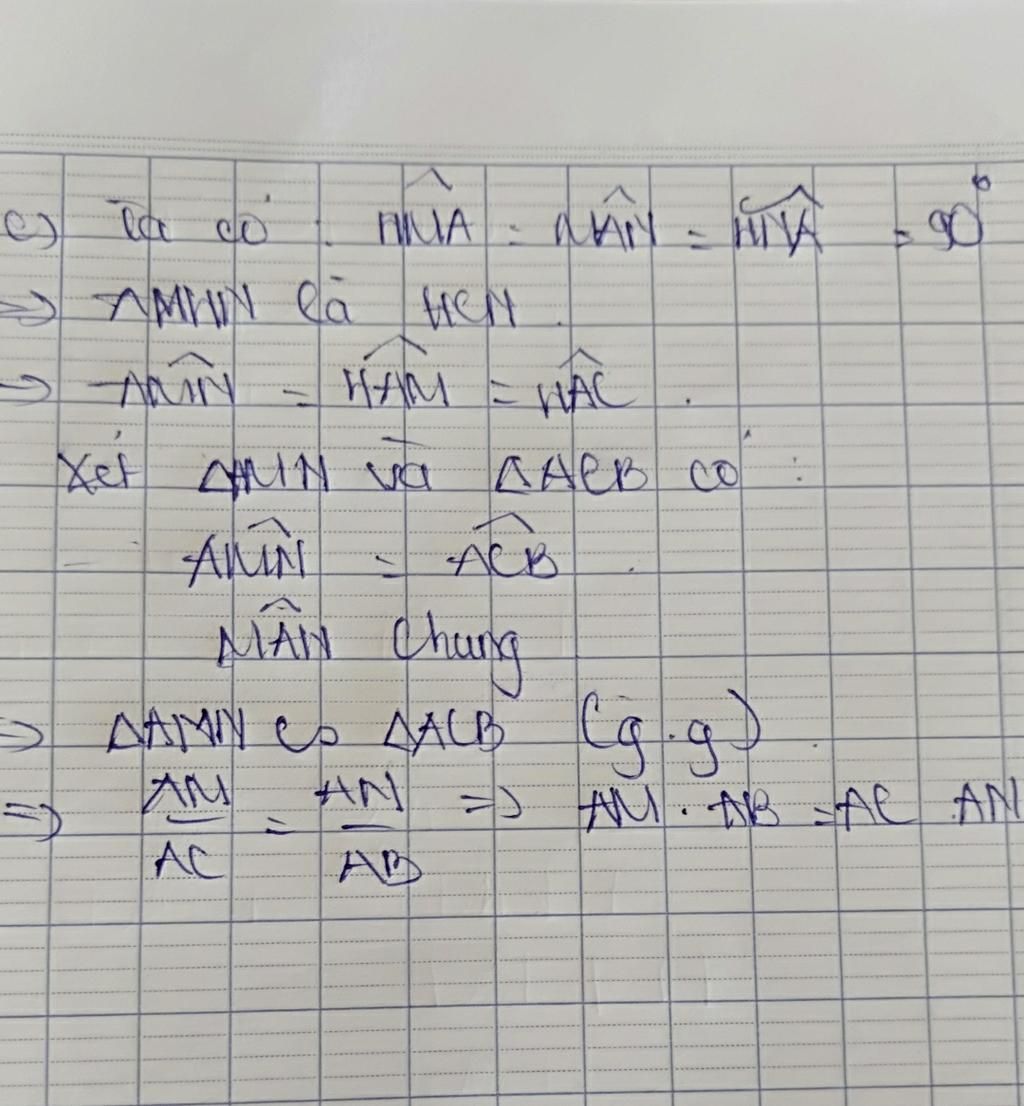 c) Ta có : HMA = MAN = HNA = 90°
=> AMHN là HCN .
=> AMN = HAM = HAC .
Xét ΔAMN và ΔACB có :
AMN = ACB .
MAN chung
=> ΔAMN ∽ ΔACB (g.g) .
=> AM/AC = AN/AB => AM . AB = AC . AN